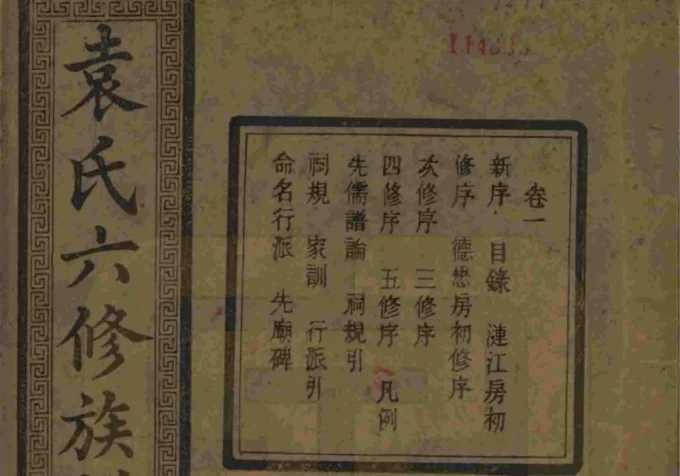 袁氏六修族
卷一
新序 目錄 漣江房初
修序 德懋房初修序
次修序 三修序
四修序 五修序 凡例
先儒譜論 祠規引
祠規 家訓 行派引
命名行派 先廟碑